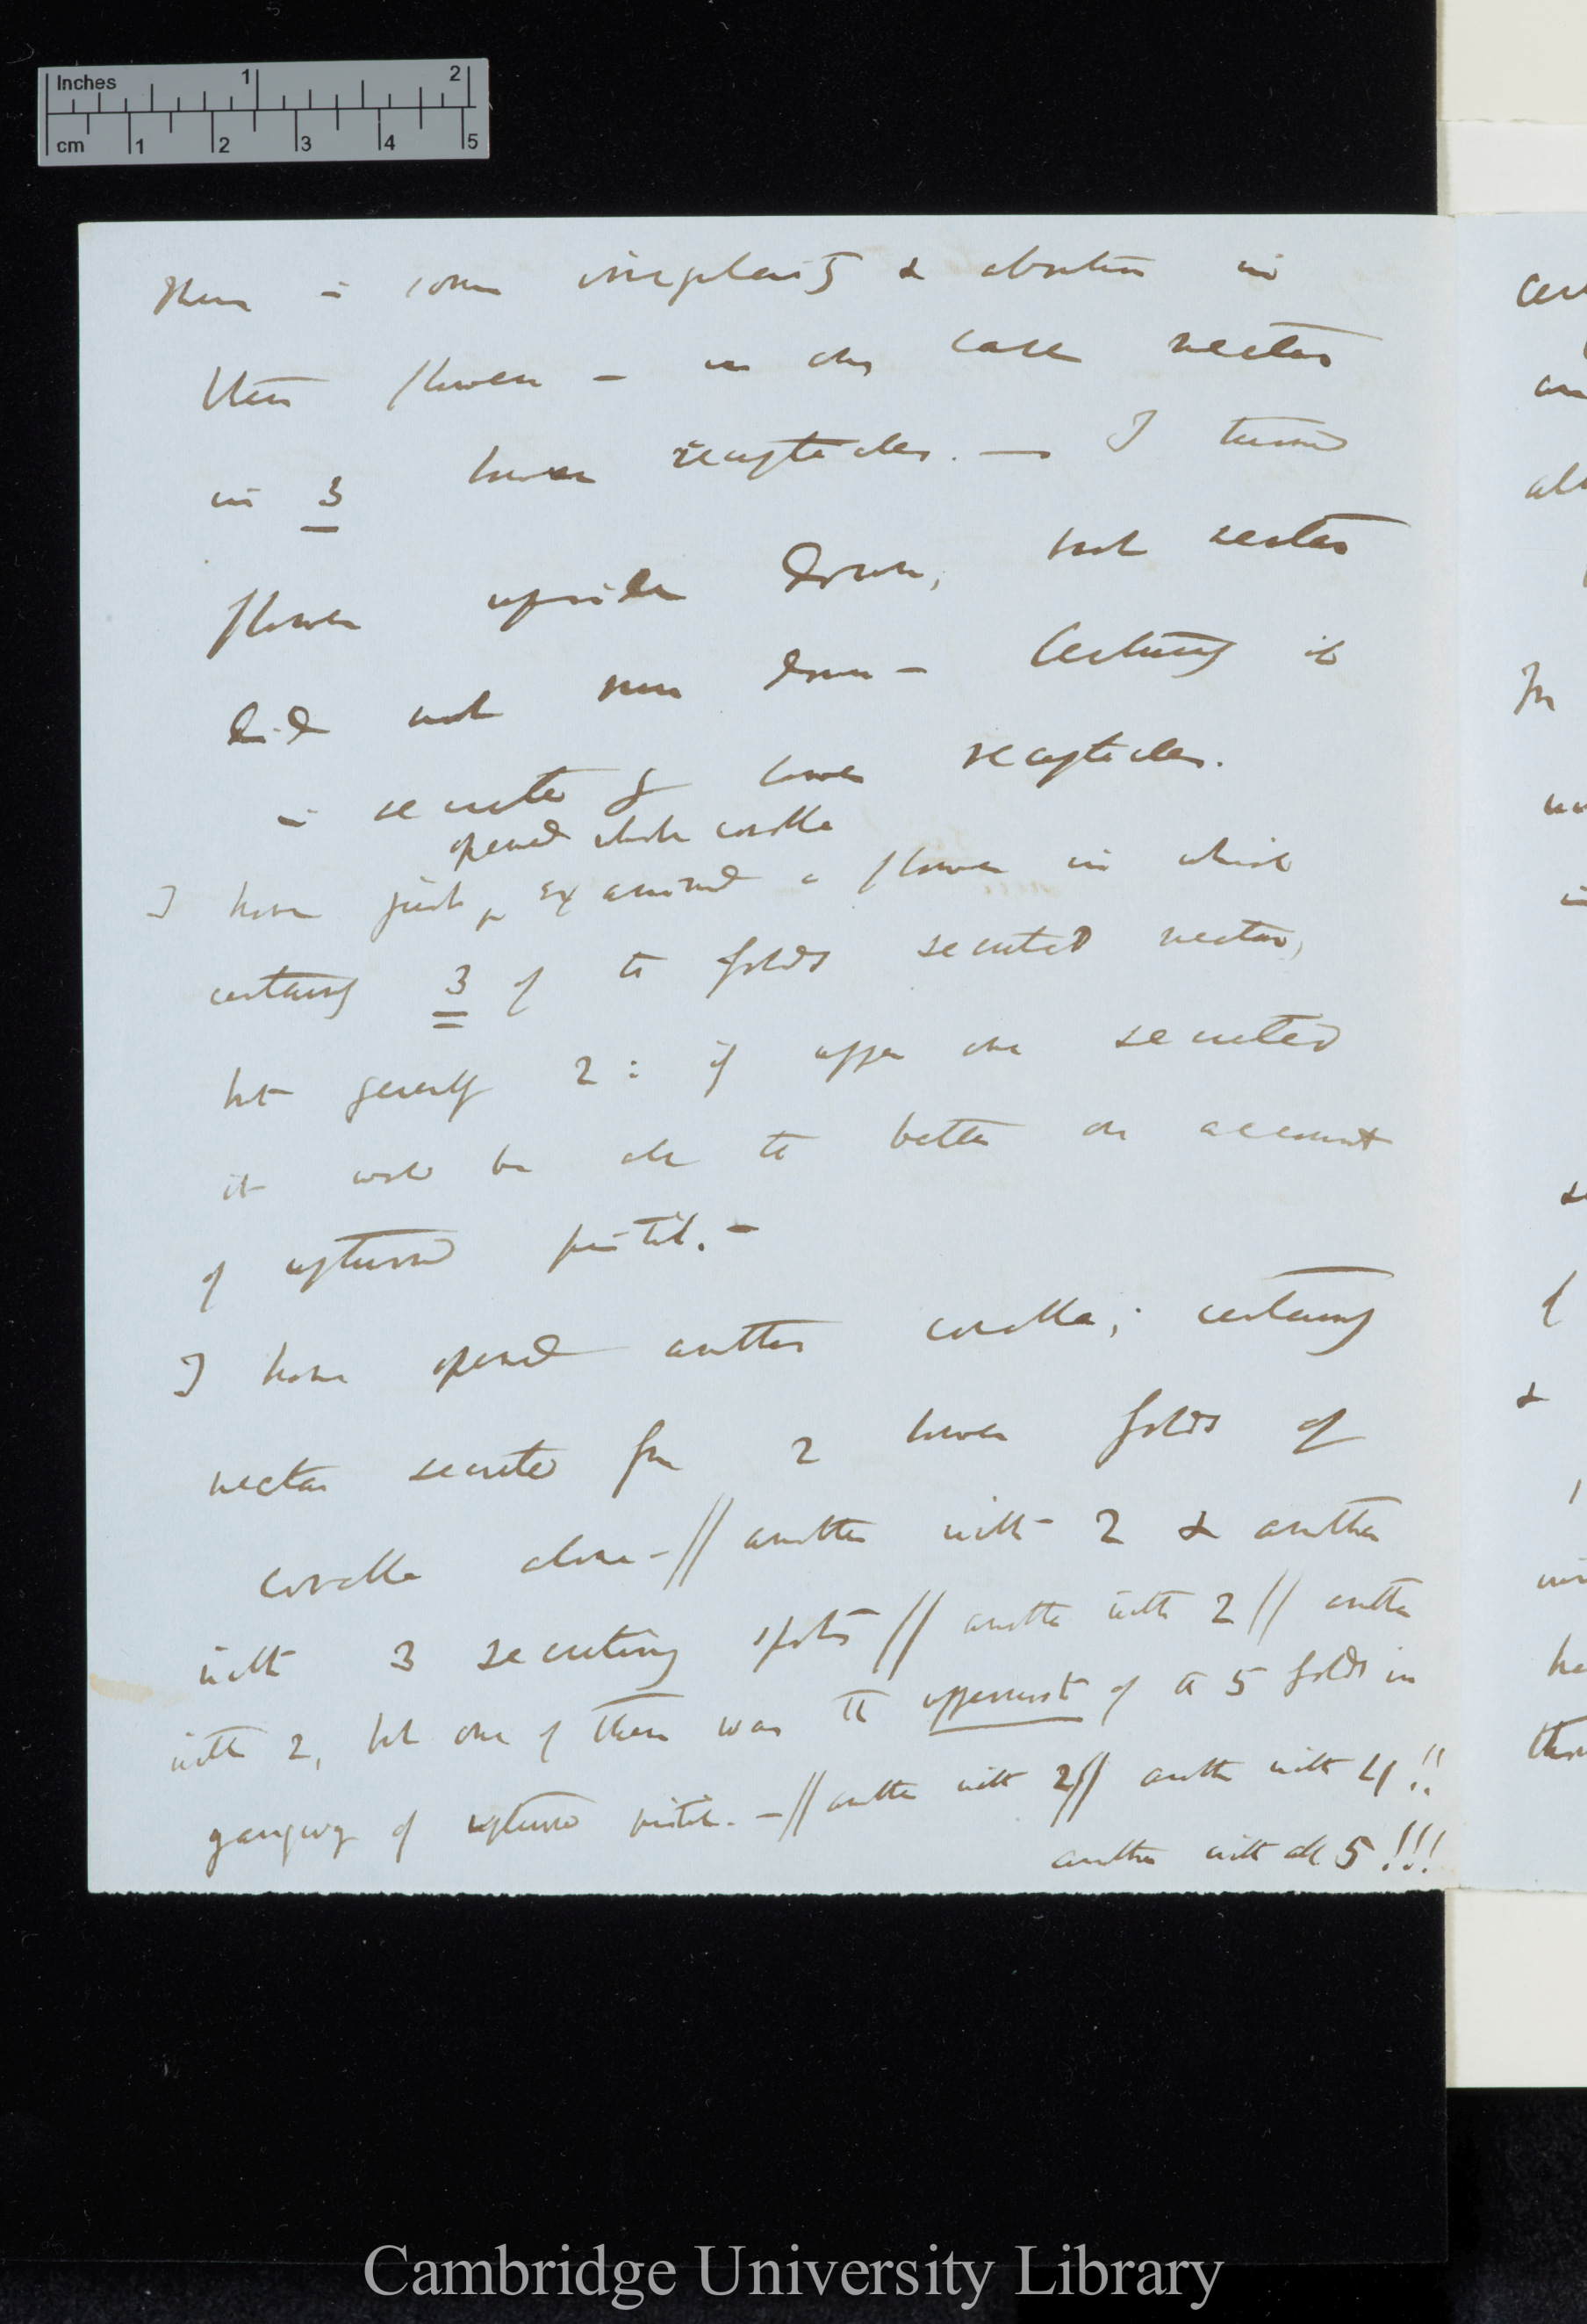 Inches 1 2
cm 1 2 3 4 5
There is some irregularity & abortion in
these flowers — in one case nectar
in 3 lower receptacles. — I turned
flower upside down, but nectar
did not run down — Certainly it
is secreted by lower receptacles.
opened whole corolla
I have just examined a flower in which
certainly 3 of the folds secreted nectar,
but generally 2: if upper one secreted
it would be all the better on account
of upturned pistil. —
I have opened another corolla; certainly
nectar secreted from 2 lower folds of
corolla alone — // another with 2 & another
with 3 secreting spots // another with 2 // another
with 2, but one of them was the uppermost of the 5 folds in
gangway of upturned pistil. — // another with 2 // another with 4!!
another with all 5!!!
Cambridge University Library